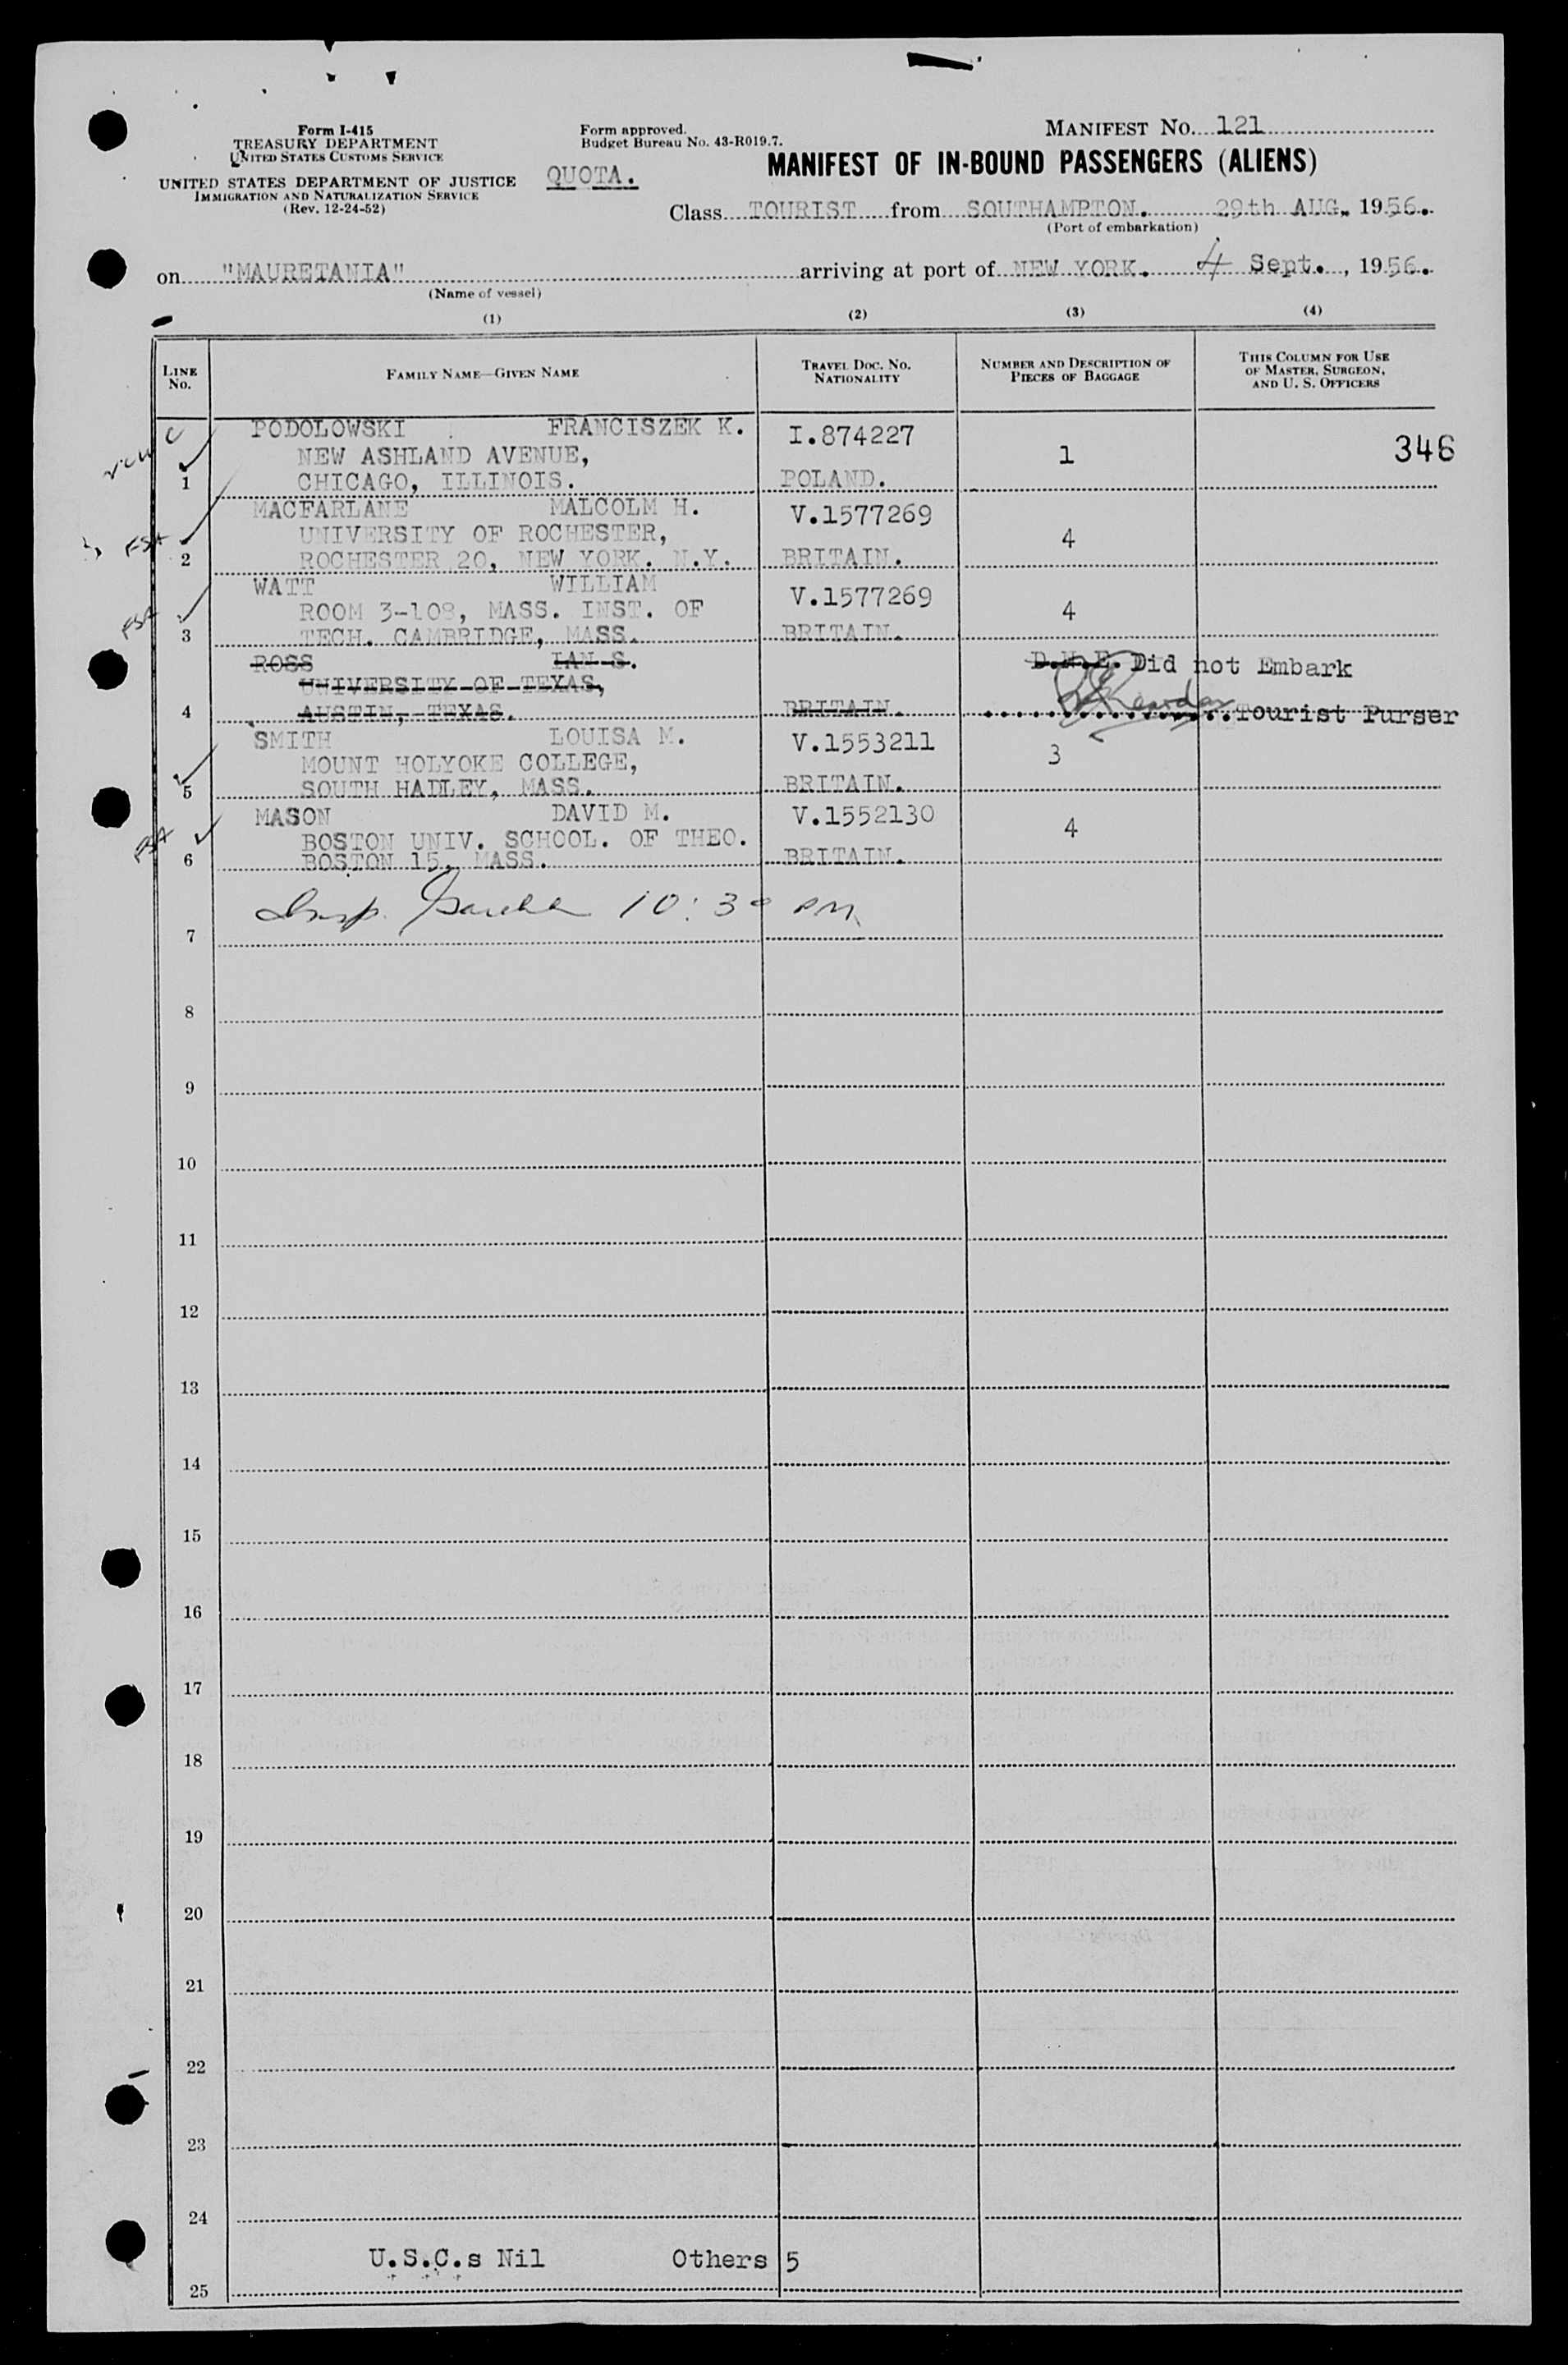 Form I-415
TREASURY DEPARTMENT
UNITED STATES CUSTOMS SERVICE
UNITED STATES DEPARTMENT OF JUSTICE
IMMIGRATION AND NATURALIZATION SERVICE
(Rev. 12-24-52)
Form approved.
Budget Bureau No. 43-R019.7.
QUOTA.
MANIFEST NO. 121
MANIFEST OF IN-BOUND PASSENGERS (ALIENS)
Class TOURIST from SOUTHAMPTON. 29th AUG. 1956.
(Port of embarkation)
on "MAURETANIA" arriving at port of NEW YORK. 4 Sept., 1956.
(Name of vessel)
(1) (2) (3) (4)
LINE NO. FAMILY NAME—GIVEN NAME TRAVEL DOC. NO. NATIONALITY NUMBER AND DESCRIPTION OF PIECES OF BAGGAGE THIS COLUMN FOR USE OF MASTER, SURGEON, AND U. S. OFFICERS
PODOLOWSKI FRANCISZEK K. I.874227 346
NEW ASHLAND AVENUE, 1
1 CHICAGO, ILLINOIS. POLAND.
MACFARLANE MALCOLM H. V.1577269
FSA UNIVERSITY OF ROCHESTER, 4
2 ROCHESTER 20, NEW YORK. N.Y. BRITAIN.
WATT WILLIAM V.1577269
FSA ROOM 3-108, MASS. INST. OF 4
3 TECH. CAMBRIDGE, MASS. BRITAIN.
ROSS IAN S. D.N.E. Did not Embark
UNIVERSITY OF TEXAS,
4 AUSTIN, TEXAS. BRITAIN. Tourist Purser
SMITH LOUISA M. V.1553211
MOUNT HOLYOKE COLLEGE, 3
5 SOUTH HADLEY, MASS. BRITAIN.
MASON DAVID M. V.1552130
BOSTON UNIV. SCHOOL. OF THEO. 4
6 BOSTON 15, MASS. BRITAIN.
Insp. 10:30 PM
7
8
9
10
11
12
13
14
15
16
17
18
19
20
21
22
23
24
U.S.C.s Nil Others 5
25